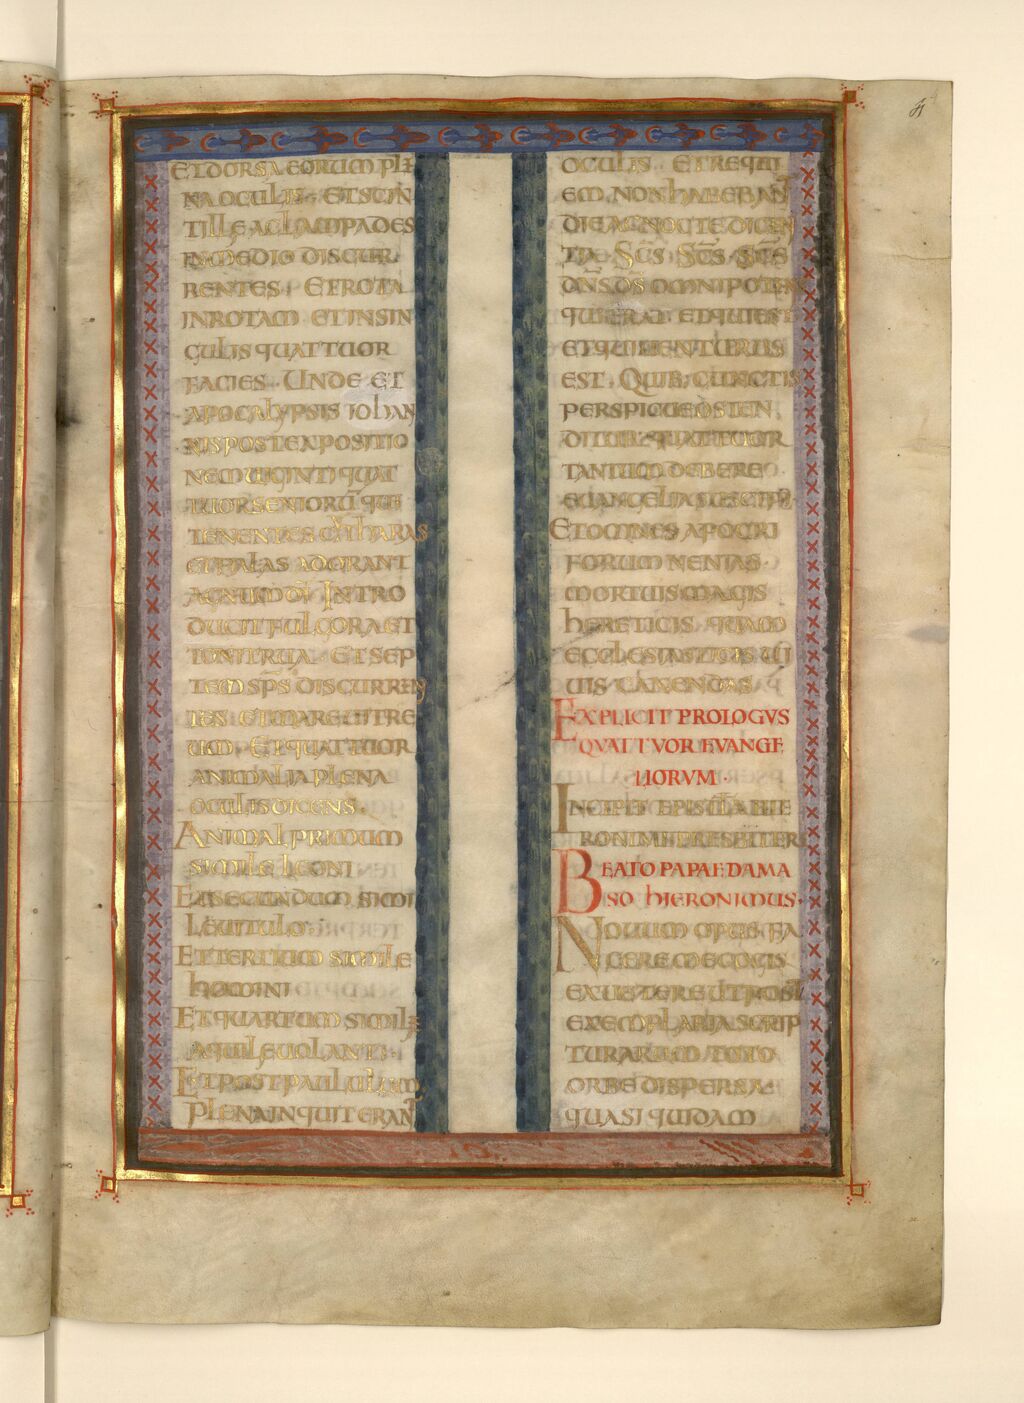 ET DORSA EORUM PLE
NA OCULIS · ET SCIN
TILLE AC LAMPADES
IN MEDIO DISCUR
RENTES · ET ROTA
IN ROTAM · ET IN SIN
GULIS QUATTUOR
FACIES · UNDE ET
APOCALYPSIS IOHAN
NIS POST EXPOSITIO
NEM UIGINTI QUAT
TUOR SENIORŪ QUI
TENENTES CYTHARAS
ET FIALAS ADORANT
AGNUM DĪ INTRO
DUCIT FULGORA ET
TONITRUA · ET SEP
TEM SPS DISCURREN
TES ET MARE UITRE
UM · ET QUATTUOR
ANIMALIA PLENA
OCULIS DICENS ·
ANIMAL PRIMUM
SIMILE LEONI
ET SECUNDUM SIMI
LE UITULO ·
ET TERTIUM SIMILE
HOMINI
ET QUARTUM SIMILE
AQUILE UOLANTI ·
ET POST PAULULUM
PLENA INQUIT ERANT
OCULIS · ET REQUI
EM NON HABEBANT
DIE AC NOCTE DICEN
TIA · SCS · SCS · SCS
DNS DS OMNIPOTENS
QUI ERAT ET QUI EST
ET QUI UENTURUS
EST · QUIB; CUNCTIS
PERSPICUE OSTEN
DITUR · QUATTUOR
TANTUM DEBERE
EUANGELIA SUSCIPI
ET OMNES APOCRI
FORUM NENIAS
MORTUIS MAGIS
HERETICIS · QUAM
ECCLESIASTICIS UI
UIS CANENDAS
EXPLICIT PROLOGVS
QVATTVOR EVANGE
LIORVM ·
INCIPIT EPISTULA HIE
RONIMI PRESBITERI
BEATO PAPAE DAMA
SO HIERONIMUS ·
NOUUM OPUS FA
CERE ME COGIS
EX UETERE UT POST
EXEMPLARIA SCRIP
TURARUM TOTO
ORBE DISPERSA ·
QUASI QUIDAM